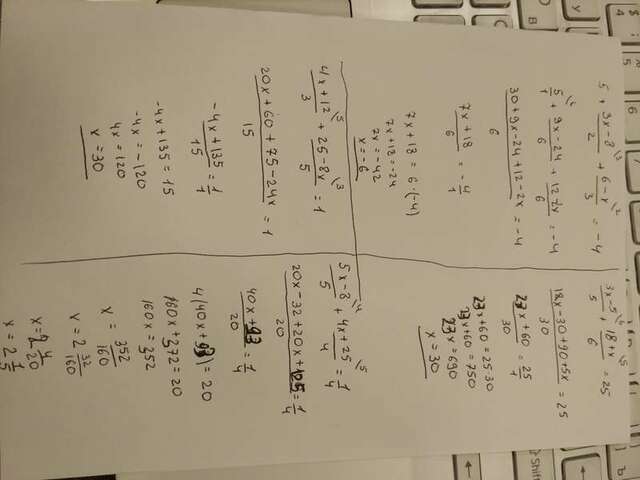 5 + 3x-8/2 + 6-x/3 = -4
5/1 + 9x-24/6 + 12-2x/6 = -4
30+9x-24+12-2x/6 = -4
7x+18/6 = -4/1
7x+18 = 6·(-4)
7x+18 = -24
7x = -42
x = -6
4x+12/3 + 25-8x/5 = 1
20x+60+75-24x/15 = 1
-4x+135/15 = 1/1
-4x+135 = 15
-4x = -120
4x = 120
x = 30
3x-5/5 + 18+x/6 = 25
18x-30+90+5x/30 = 25
23x+60/30 = 25/1
23x+60 = 25·30
23x+60 = 750
23x = 690
x = 30
5x-8/5 + 4x+25/4 = 1/4
20x-32+20x+125/20 = 1/4
40x+93/20 = 1/4
4(40x+93) = 20
160x+372 = 20
160x = 352
x = 352/160
x = 2 32/160
x = 2 4/20
x = 2 1/5
Shift